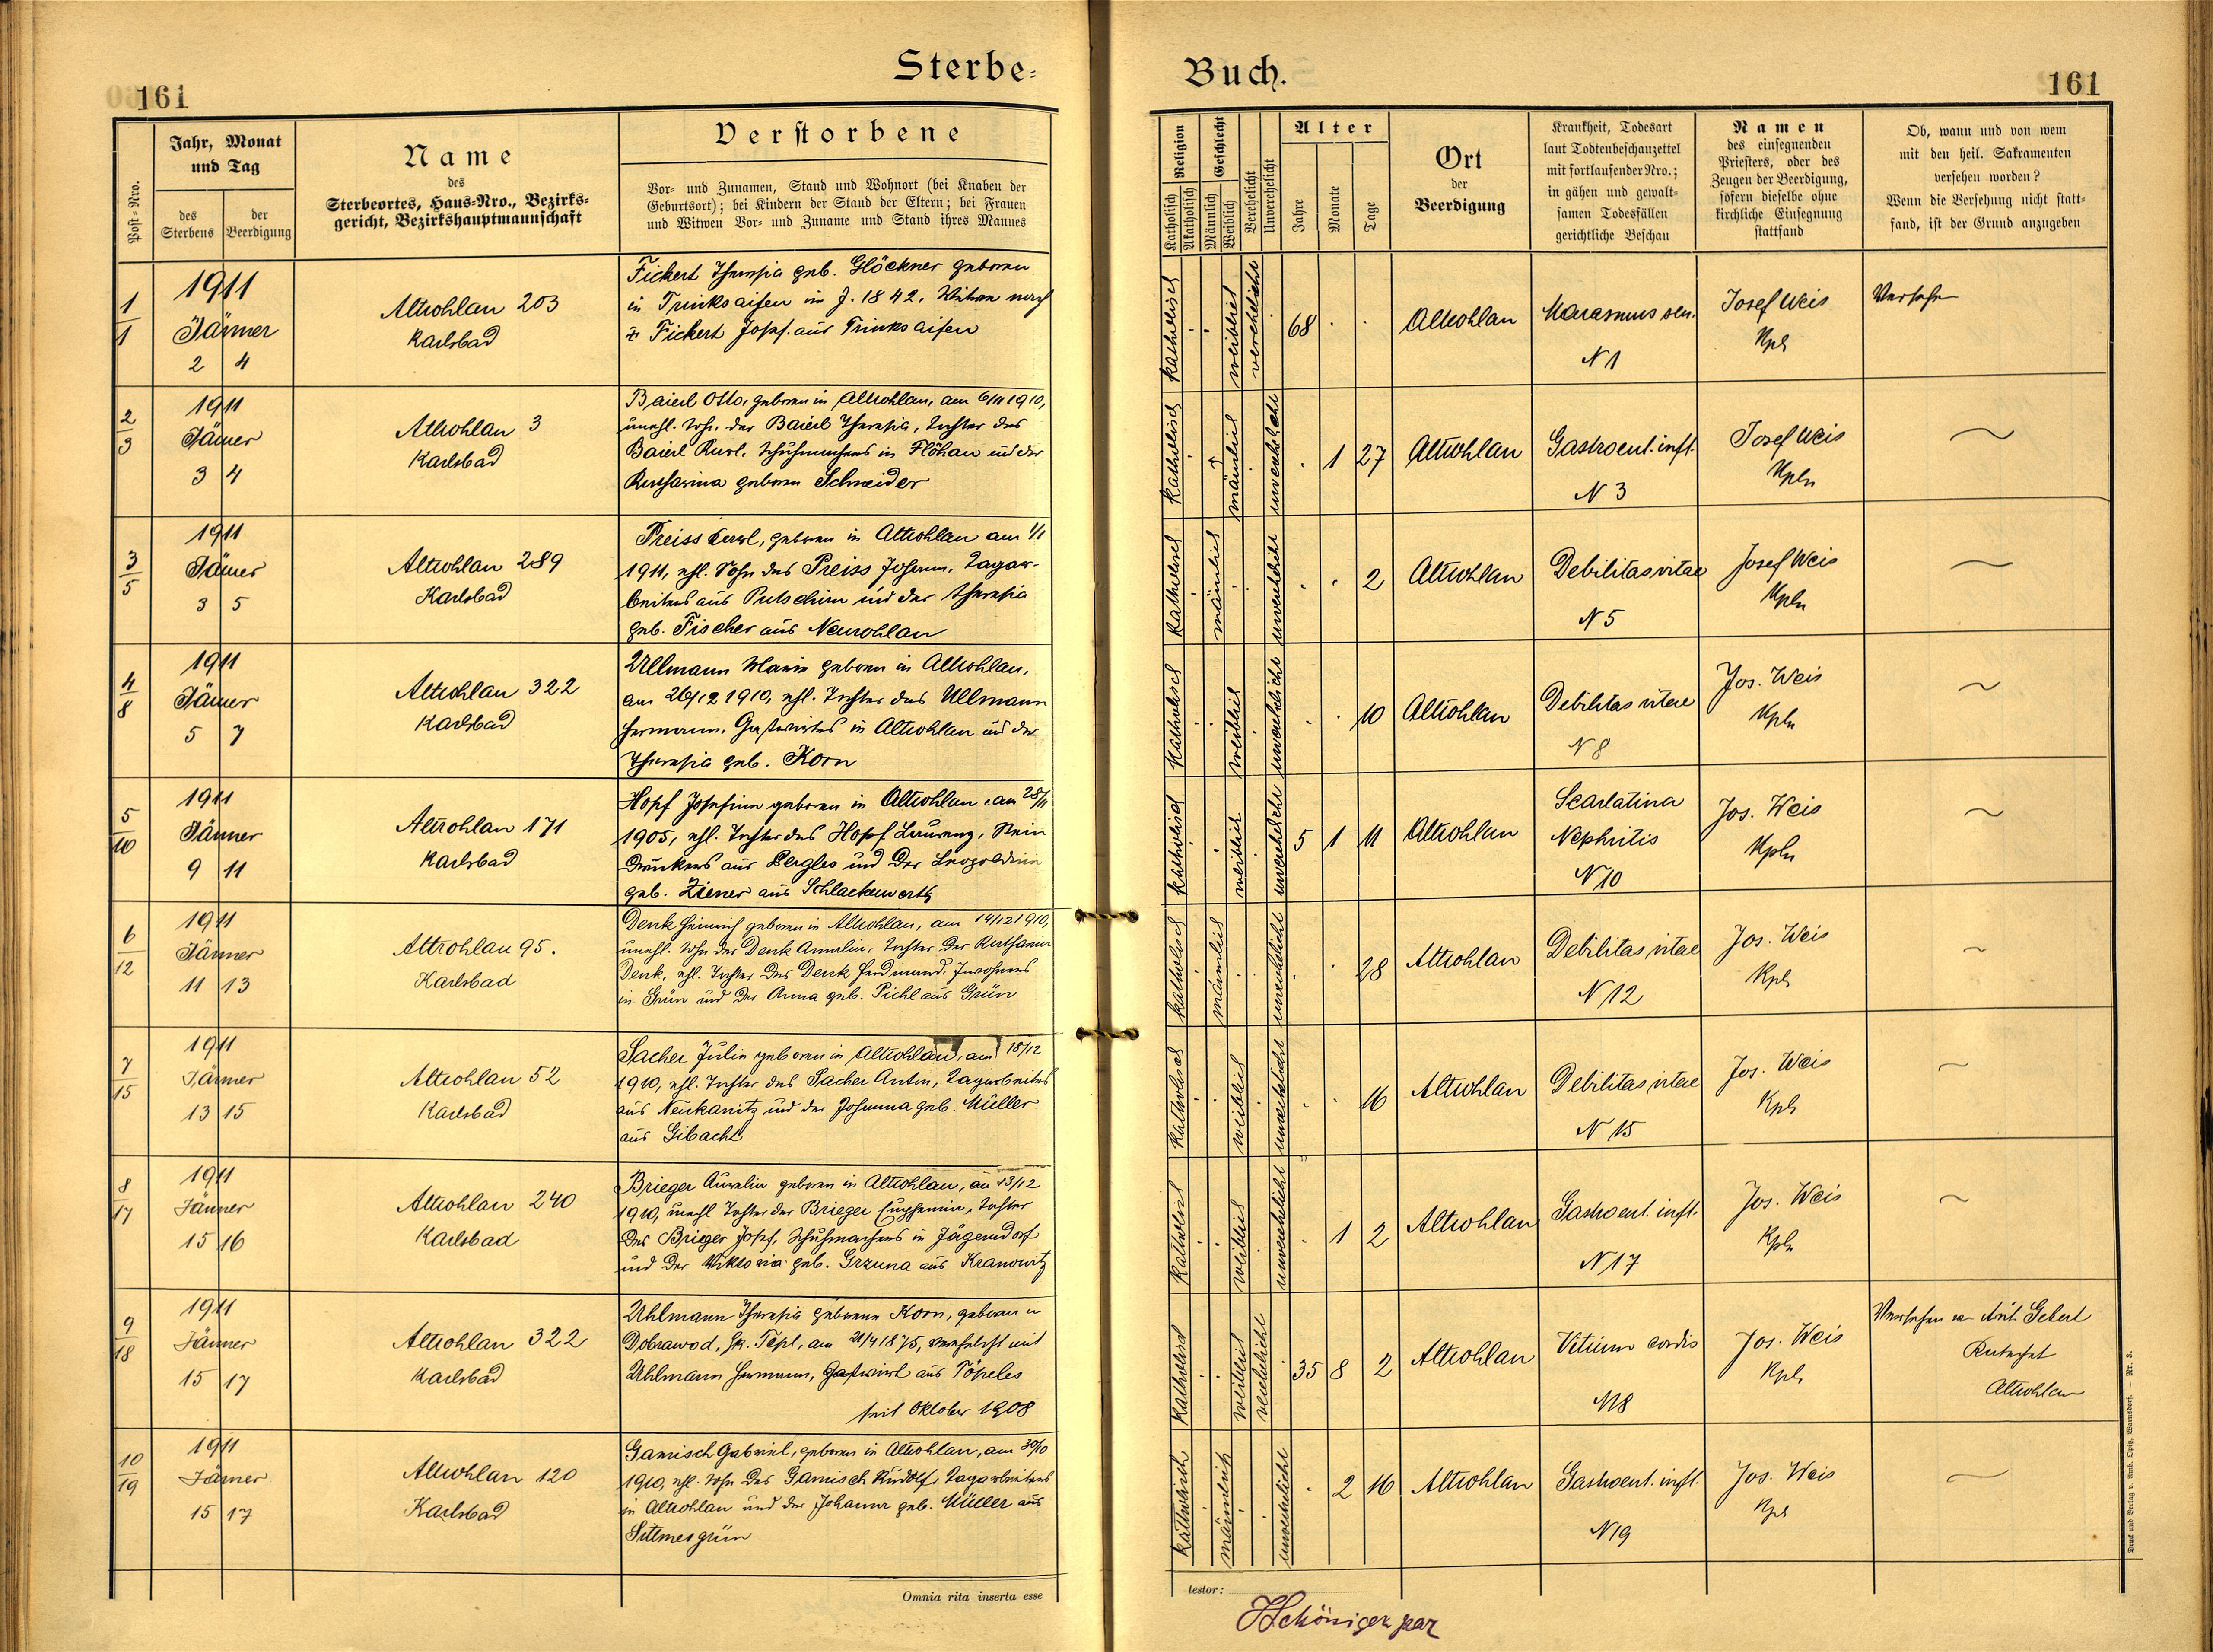 161
Sterbe=
Buch.
161
Post-Nro.
Jahr, Monat
und Tag
des
Sterbens
der
Beerdigung
Name
des
Sterbeortes, Haus-Nro., Bezirks=
gericht, Bezirkshauptmannschaft
Verstorbene
Vor- und Zunamen, Stand und Wohnort (bei Knaben der
Geburtsort); bei Kindern der Stand der Eltern; bei Frauen
und Witwen Vor- und Zuname und Stand ihres Mannes
Religion
Katholisch
Akatholisch
Geschlecht
Männlich
Weiblich
Verehelicht
Unverehelicht
Alter
Jahre
Monate
Tage
Ort
der
Beerdigung
Krankheit, Todesart
laut Todtenbeschauzettel
mit fortlaufender Nro.;
in gähen und gewalt=
samen Todesfällen
gerichtliche Beschau
Namen
des einsegnenden
Priesters, oder des
Zeugen der Beerdigung,
sofern dieselbe ohne
kirchliche Einsegnung
stattfand
Ob, wann und von wem
mit den heil. Sakramenten
versehen worden?
Wenn die Versehung nicht statt=
fand, ist der Grund anzugeben
1
1
1911
Jänner
2 4
Altrohlau 203
Karlsbad
Fickert Theresia geb. Glöckner geboren
in Trinksaifen im J. 1842, Witwe nach
Fickert Josef aus Trinksaifen
katholisch weiblich verehelicht
68
Altrohlau
Marasmus sen.
N 1
Josef Weis
Kpl
Versehen
2
3
1911
Jänner
3 4
Altrohlau 3
Karlsbad
Baierl Otto, geboren in Altrohlau, am 6/11 1910,
unehl. Sohn der Baierl Theresia, Tochter des
Baierl Karl, Schuhmachers in Flöhau und der
Katharina geboren Schneider
katholisch männlich unverehelicht
1 27
Altrohlau
Gastroent. inft.
N 3
Josef Weis
Kpln
3
5
1911
Jänner
3 5
Altrohlau 289
Karlsbad
Preiss Karl, geboren in Altrohlau am 1/1
1911, ehl. Sohn des Preiss Johann, Tagar-
beiters aus Putschirn und der Theresia
geb. Fischer aus Neurohlau
katholisch männlich unverehelicht
2
Altrohlau
Debilitas vitae
N 5
Josef Weis
Kpln
4
8
1911
Jänner
5 7
Altrohlau 322
Karlsbad
Ullmann Marie geboren in Altrohlau,
am 26/12 1910, ehl. Tochter des Ullmann
Hermann, Gastwirtes in Altrohlau und der
Theresia geb. Korn
katholisch weiblich unverehelicht
10
Altrohlau
Debilitas vitae
N 8
Jos. Weis
Kpln
5
10
1911
Jänner
9 11
Altrohlau 171
Karlsbad
Hopf Josefine geboren in Altrohlau, am 28/11
1905, ehl. Tochter des Hopf Laurenz, Stein
druckers aus Pergles und der Leopoldine
geb. Ziener aus Schlackenwerth
katholisch weiblich unverehelicht
5 1 11
Altrohlau
Scarlatina
Nephritis
N 10
Jos. Weis
Kpln
6
12
1911
Jänner
11 13
Altrohlau 95.
Karlsbad
Denk Heinrich geboren in Altrohlau, am 14/12 1910,
unehl. Sohn der Denk Amalia, Tochter der Katharina
Denk, ehl. Tochter des Denk Ferdinand, Inwohners
in Grün und der Anna geb. Pichl aus Grün
katholisch männlich unverehelicht
28
Altrohlau
Debilitas vitae
N 12
Jos. Weis
Kpl
7
15
1911
Jänner
13 15
Altrohlau 52
Karlsbad
Sacher Julie geboren in Altrohlau, am 18/12
1910, ehl. Tochter des Sacher Anton, Tagarbeiters
aus Neukanitz und der Johanna geb. Müller
aus Gibacht
katholisch weiblich unverehelicht
16
Altrohlau
Debilitas vitae
N 15
Jos. Weis
Kpl
8
17
1911
Jänner
15 16
Altrohlau 240
Karlsbad
Brieger Aurelia geboren in Altrohlau, am 13/12
1910, unehl Tochter der Brieger Eugenia, Tochter
des Brieger Josef, Schuhmachers in Jägerndorf
und der Viktoria geb. Grzuna aus Kranowitz
katholisch weiblich unverehelicht
1 2
Altrohlau
Gastroent. inft.
N 17
Jos. Weis
Kpln
9
18
1911
Jänner
15 17
Altrohlau 322
Karlsbad
Uhlmann Theresia geborene Korn, geboren in
Dobrawod, Bz. Tepl, am 21/4 1875, verehelicht mit
Uhlmann Hermann, Gastwirt aus Pöpeles
seit Oktober 1908
katholisch weiblich verehelicht
35 8 2
Altrohlau
Vitium cordis
N 18
Jos. Weis
Kpl.
Versehen v. Ant. Gebert
Katechet
Altrohlau
10
19
1911
Jänner
15 17
Altrohlau 120
Karlsbad
Gamisch Gabriel, geboren in Altrohlau, am 30/10
1910, ehl. Sohn des Gamisch Rudolf, Tagarbeiters
in Altrohlau und der Johanna geb. Müller aus
Sittmesgrün
katholisch männlich unverehelicht
2 16
Altrohlau
Gastroent. inft.
N 19
Jos. Weis
Kpl
Omnia rita inserta esse
testor:
Druck und Verlag v. Amb. Opitz, Warnsdorf. — Nr. 3.